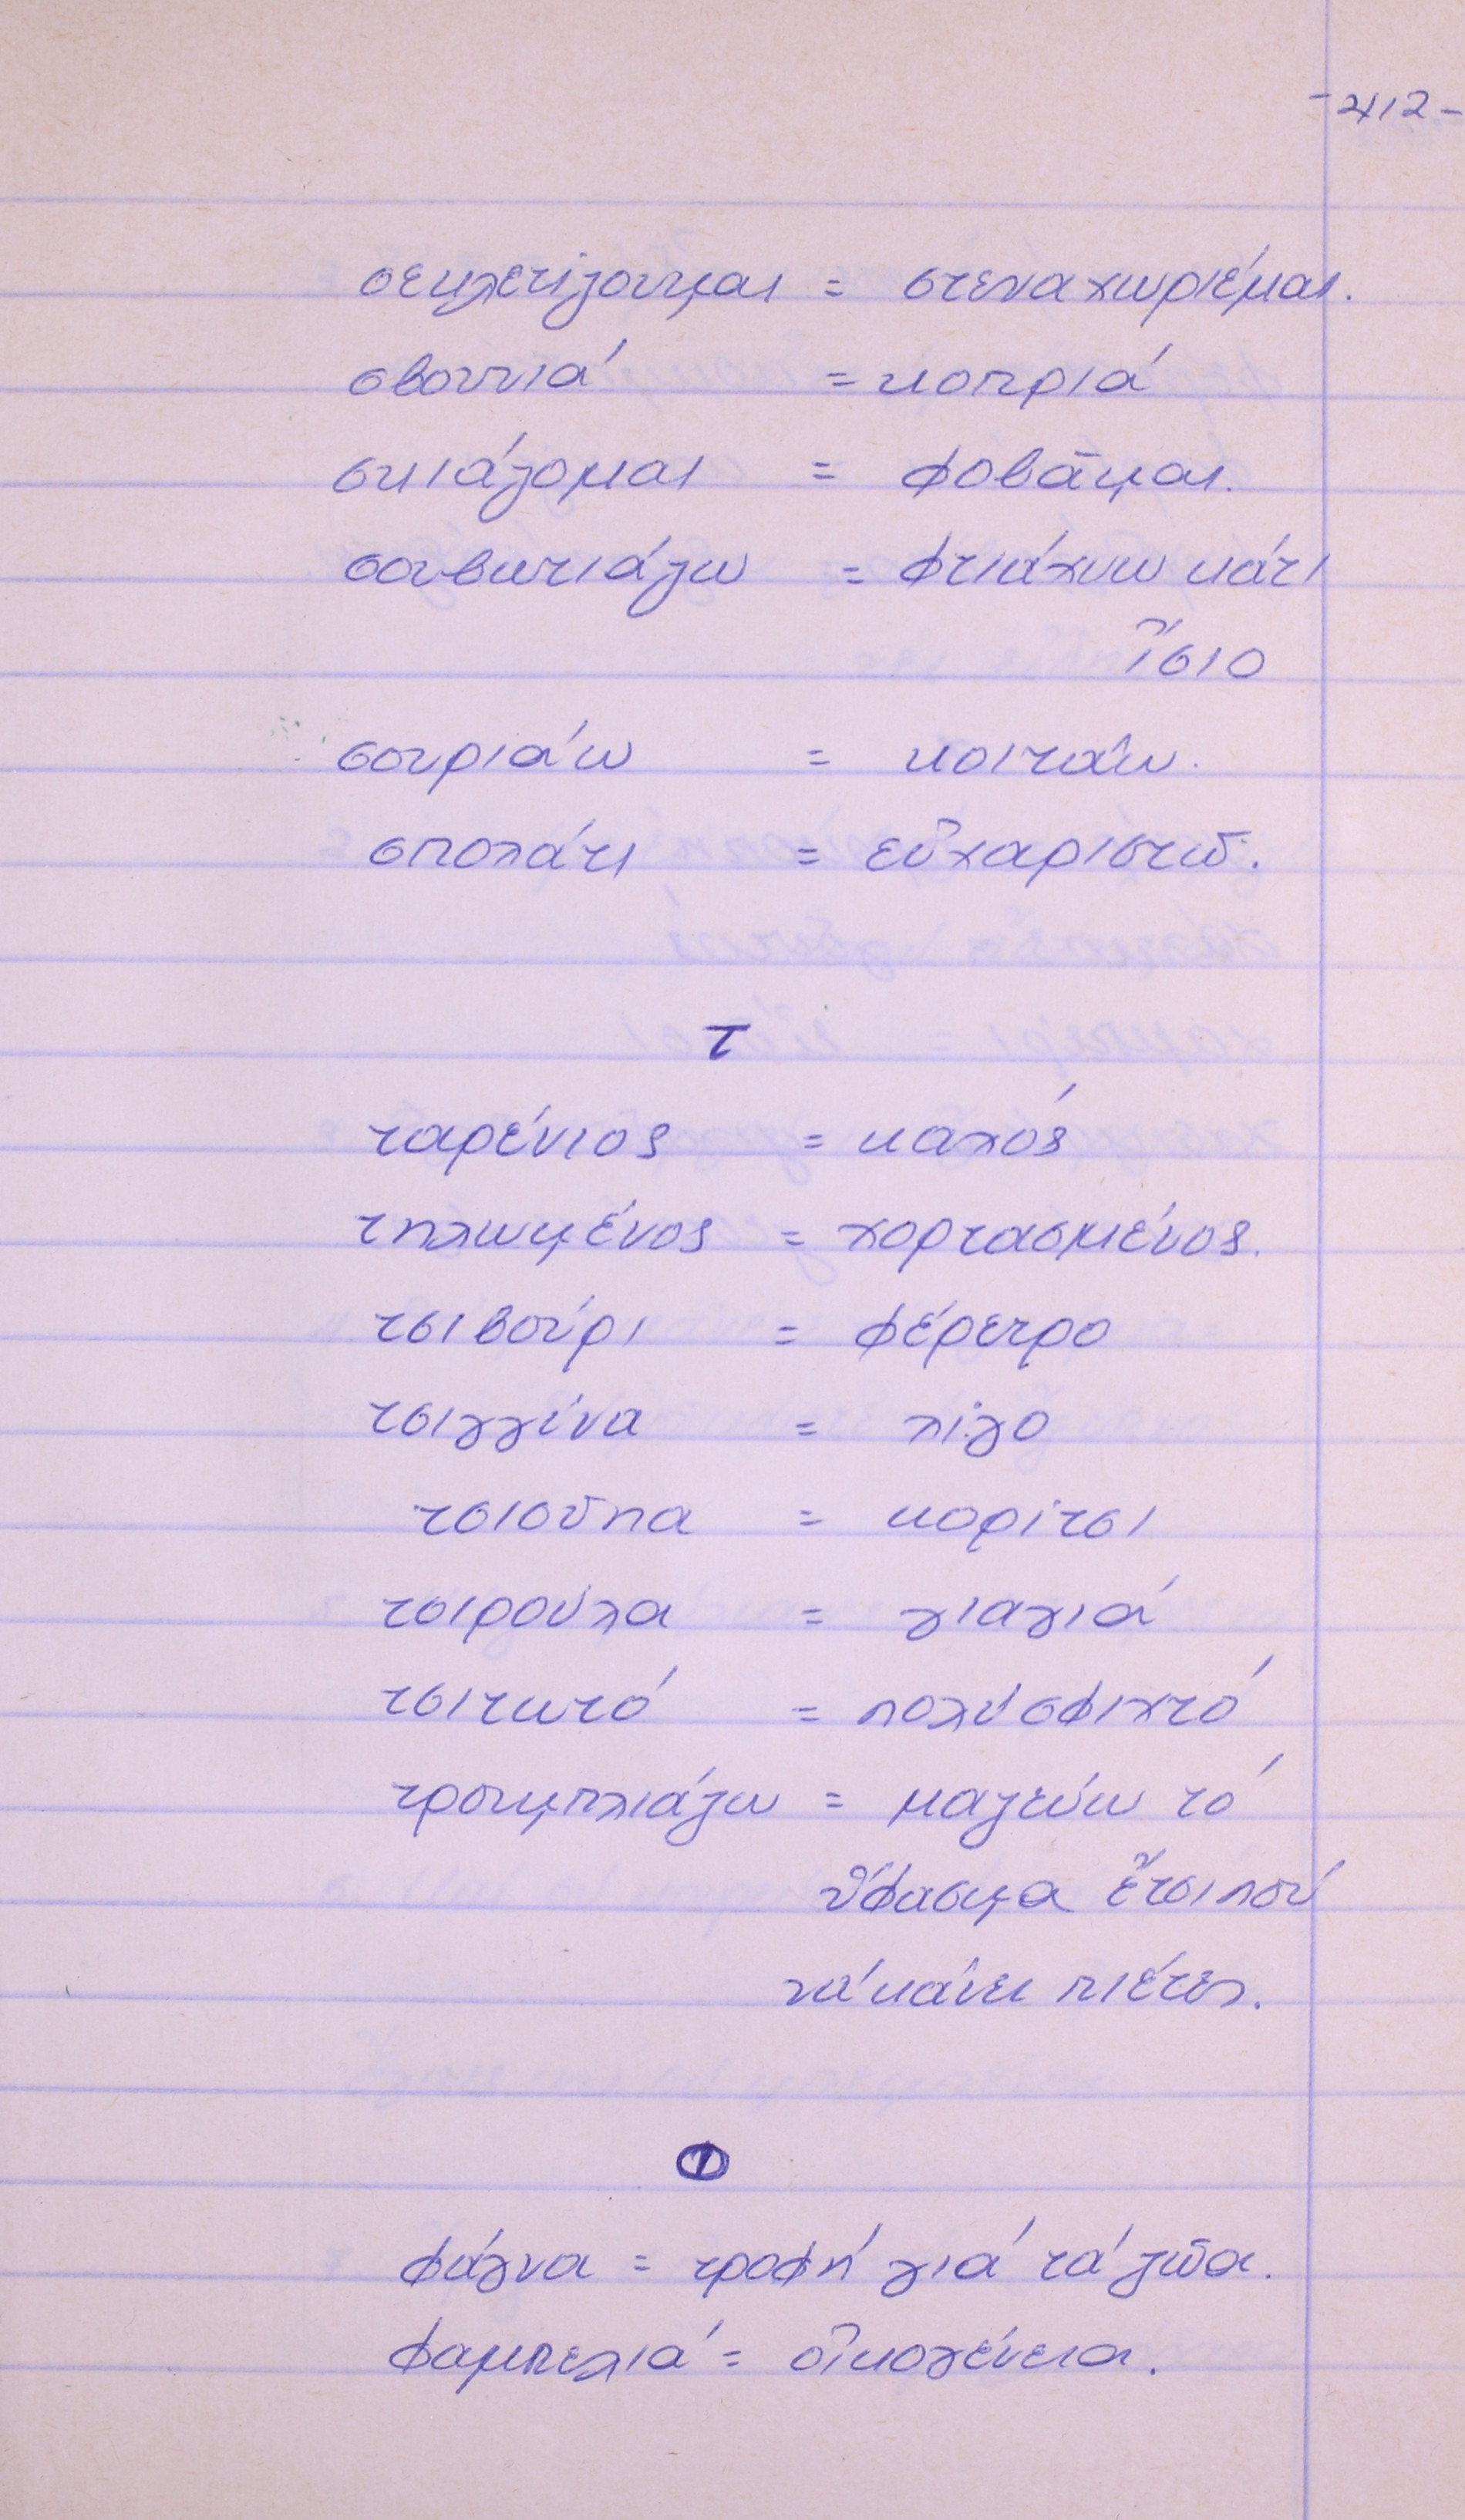 -212-
σεκλετίζουμαι = στεναχωριέμαι.
σβουνιά = κοπριά
σκιάζομαι = φοβᾶμαι.
σουβατιάζω = φτιάχνω κάτι
ἴσιο
σουριάω = κοιτάω.
σπολάτι = εὐχαριστῶ.
τ
ταρένιος = καλός
τηλωμένος = χορτασμένος.
τσιβούρι = φέρετρο
τσιγγίνα = λίγο
τσιοῦπα = κορίτσι
τσιρούλα = γιαγιά
τσιτωτό = πολύ σφιχτό
τρουμπλιάζω = μαζεύω τό
ὕφασμα ἔτσι πού
νά κάνει πιέτες.
Φ
φάγνα = τροφή γιά τά ζῶα.
φαμπελιά = οἰκογένεια.